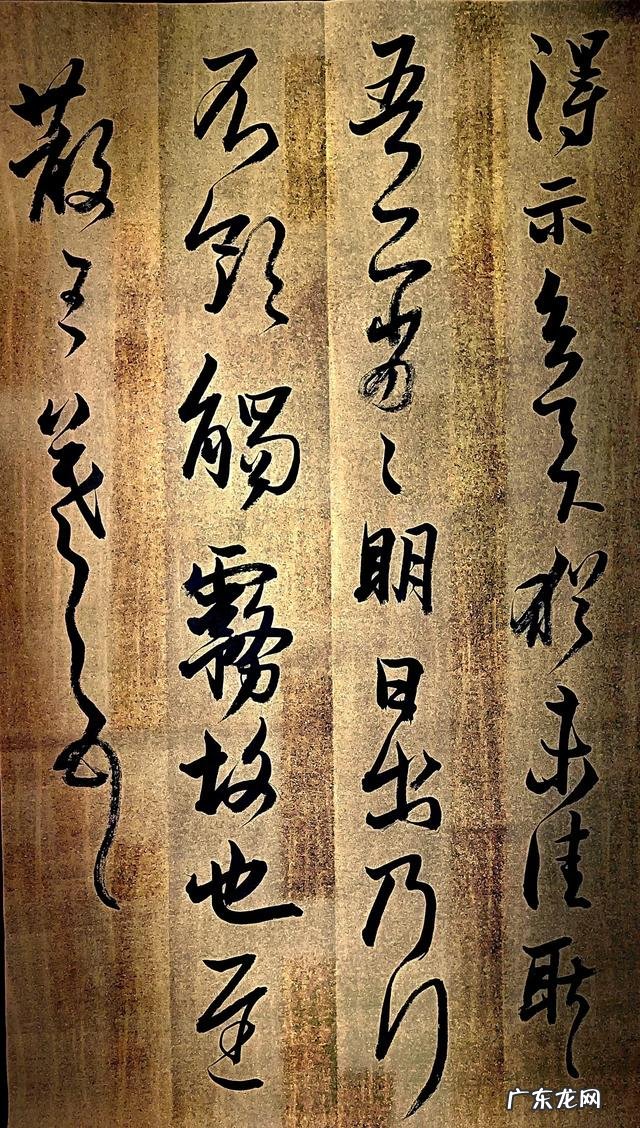 得示知足下猶未佳耿々
吾亦劣々明日出乃行
不欲觸霧故也遲
散王羲之頓首
广东龙网